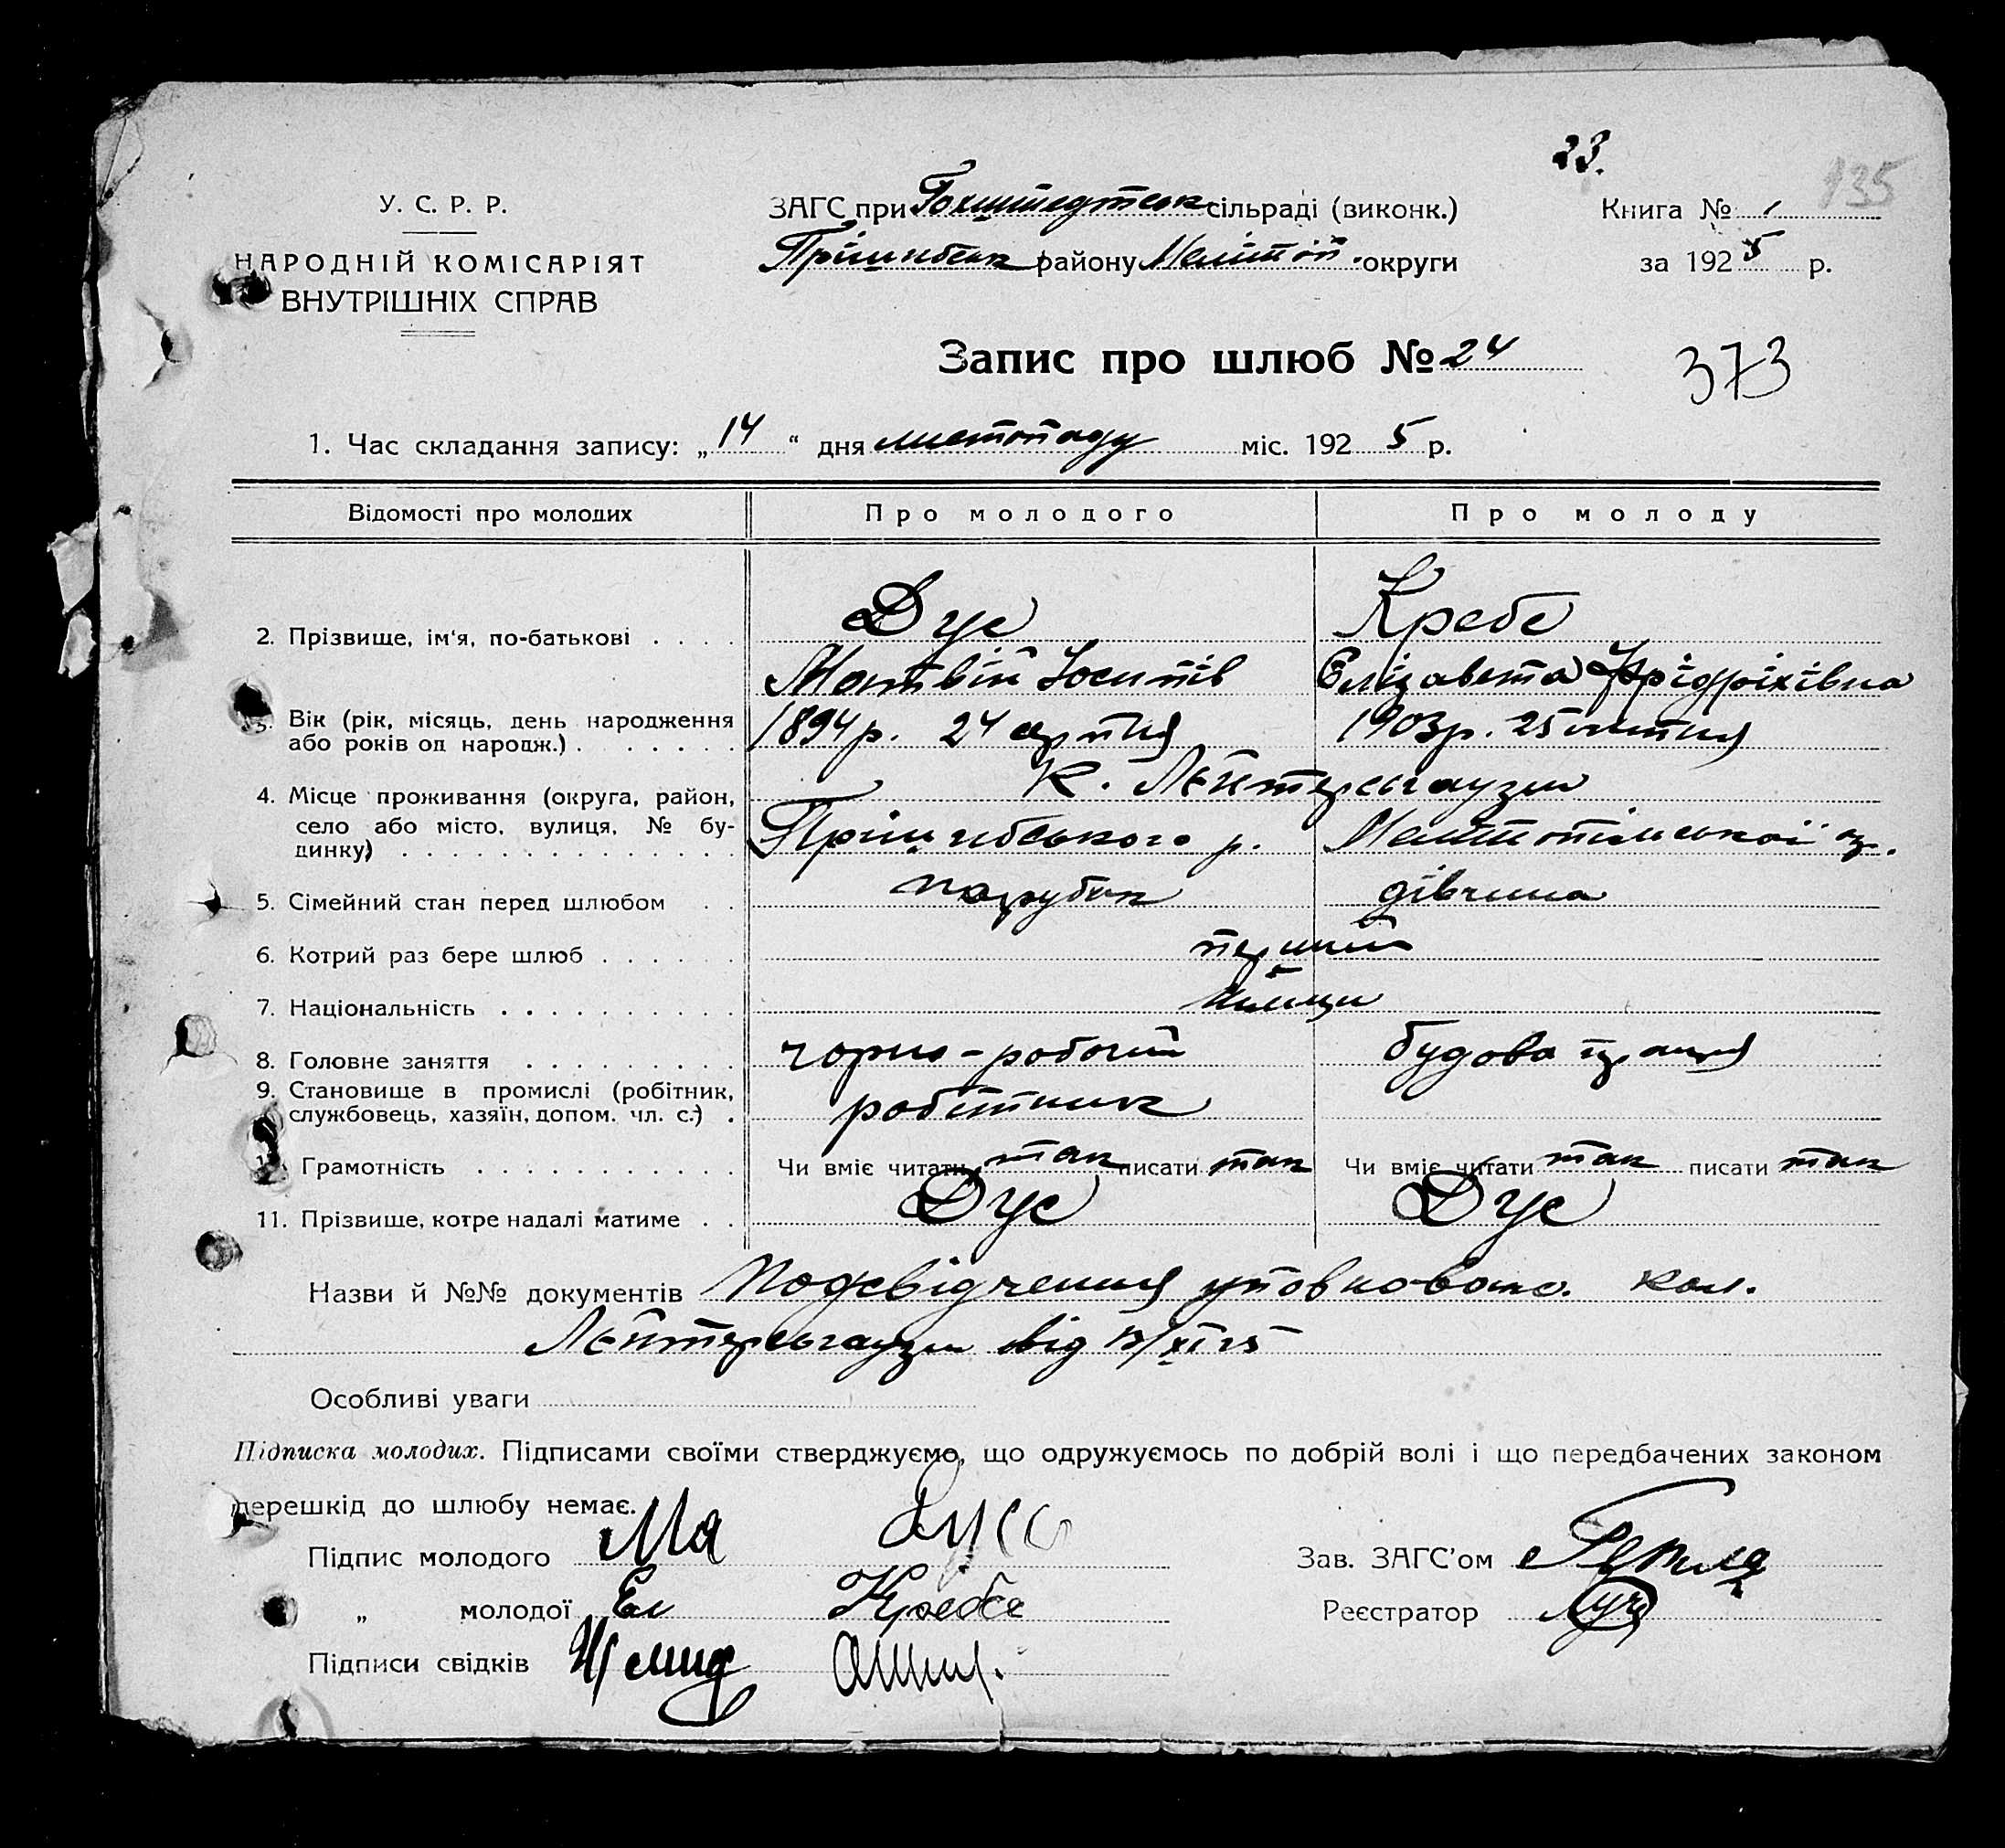 23.
135
У. С. Р. Р.
НАРОДНІЙ КОМІСАРІЯТ
ВНУТРІШНІХ СПРАВ
ЗАГС при Гохштедтськ сільраді (виконк.)
Пришибськ району Мелітоп. округи
Книга № 1
за 1925 р.
Запис про шлюб № 24
373
1. Час складання запису: „14“ дня листопаду міс. 1925 р.
Відомості про молодих Про молодого Про молоду
2. Прізвище, ім'я, по-батькові . . . . Дус Кребс
Матвій Йосипів Єлізавета Фрідріхівна
3. Вік (рік, місяць, день народження
або років од народж.) . . . . . . . 1894 р. 24 серпня 1903 р. 25
4. Місце проживання (округа, район,
село або місто, вулиця, № бу-
динку) . . . . . . . . . . . . . .
К. Лейтерсгаузен
Пришибського р. Мелітопільської ок.
5. Сімейний стан перед шлюбом . . парубок дівчина
6. Котрий раз бере шлюб . . . . . . перший
7. Національність . . . . . . . . . . німци
8. Головне заняття . . . . . . . . . чорно-робочий
9. Становище в промислі (робітник,
службовець, хазяїн, допом. чл. с.) . робітник
Грамотність . . . . . . . . . . . Чи вміє читати так писати так Чи вміє читати так писати так
11. Прізвище, котре надалі матиме . . Дус Дус
Назви й №№ документів Посвідчення уповноваж. кол.
Лейтерсгаузен від
Особливі уваги
Підписка молодих. Підписами своїми стверджуємо, що одружуємось по добрій волі і що передбачених законом
перешкід до шлюбу немає.
Підпис молодого Ма Дусс
„ молодої Ел Кребс
Підписи свідків
Зав. ЗАГС'ом
Реєстратор